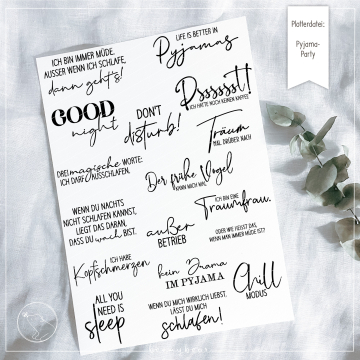 Plotterdatei:
Pyjama-
Party
ICH BIN IMMER MÜDE.
AUSSER WENN ICH SCHLAFE,
dann geht's!
LIFE IS BETTER IN
Pyjamas
GOOD
night
DON'T
disturb!
Psssssst!
ICH HATTE NOCH KEINEN KAFFEE
Träum
MAL DRÜBER NACH
DREI magische WORTE:
ICH DARF AUSSCHLAFEN.
Der frühe Vogel
KANN MICH MAL
WENN DU NACHTS
NICHT SCHLAFEN KANNST,
LIEGT DAS DARAN,
DASS DU wach BIST.
außer
BETRIEB
ICH BIN EINE
Traumfrau.
ODER WIE HEISST DAS,
WENN MAN IMMER MÜDE IST?
ICH HABE
Kopfschmerzen
kein Drama
IM PYJAMA
Chill
MODUS
ALL YOU
NEED IS
sleep
WENN DU MICH WIRKLICH LIEBST,
LÄSST DU MICH
schlafen!